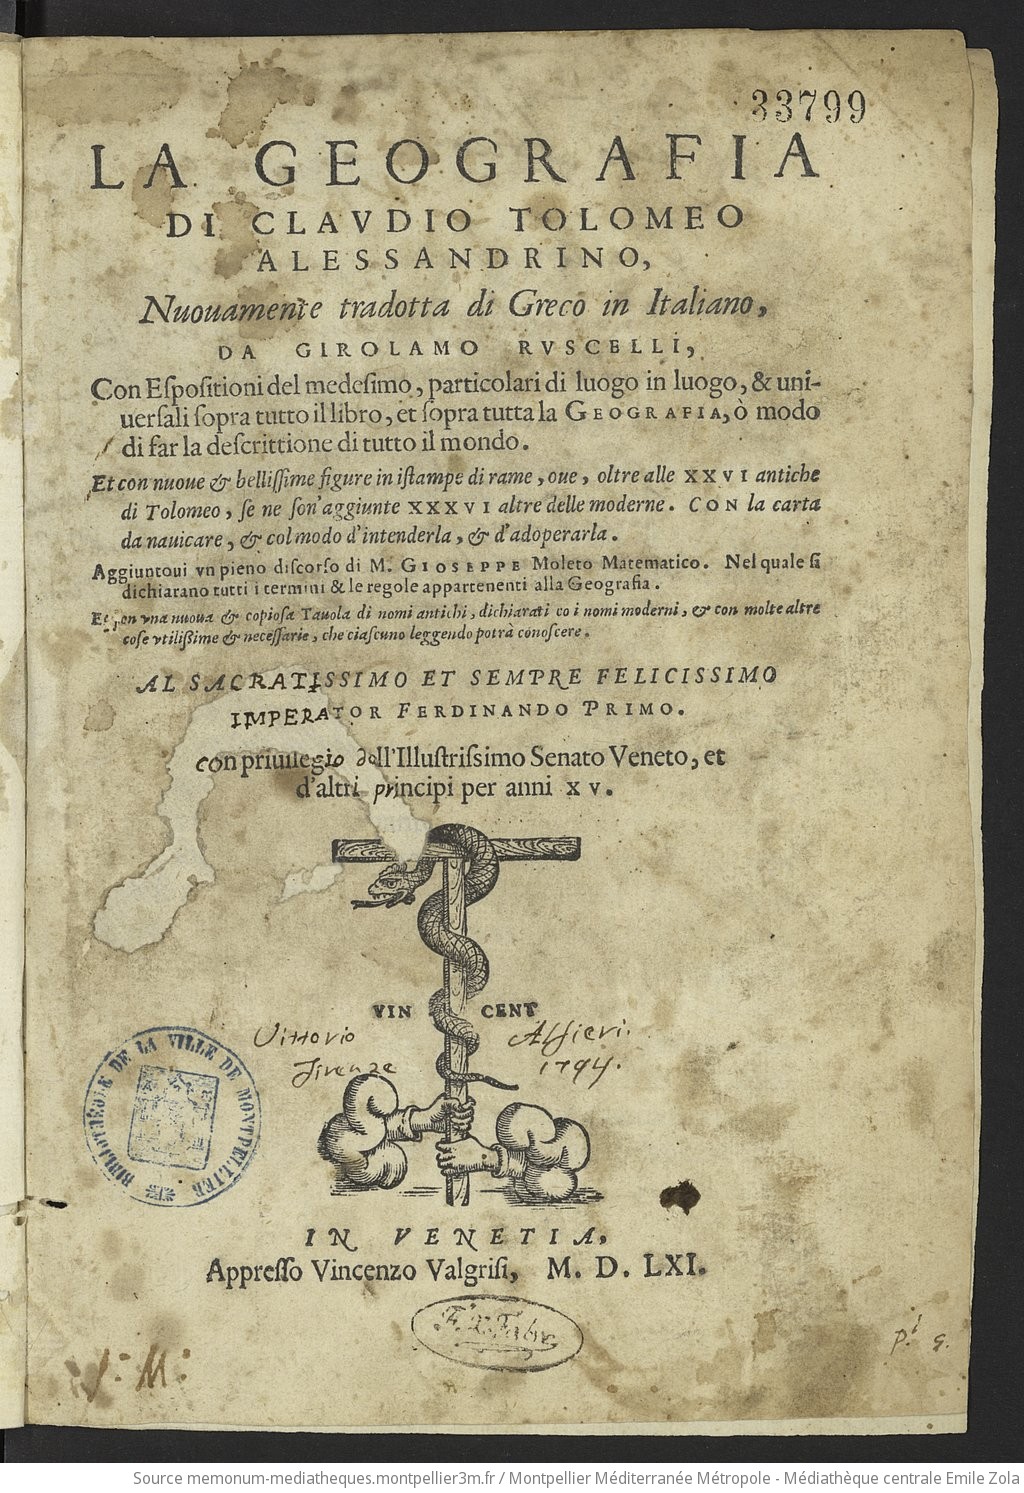 33799
LA GEOGRAFIA
DI CLAVDIO TOLOMEO
ALESSANDRINO,
Nuouamente tradotta di Greco in Italiano,
DA GIROLAMO RVSCELLI,
Con Eſpoſitioni del medeſimo, particolari di luogo in luogo, & uni-
uerſali ſopra tutto il libro, et ſopra tutta la GEOGRAFIA, ò modo
di far la deſcrittione di tutto il mondo.
Et con nuoue & belliſſime figure in iſtampe di rame, oue, oltre alle XXVI antiche
di Tolomeo, ſe ne ſon'aggiunte XXXVI altre delle moderne. CON la carta
da nauicare, & col modo d'intenderla, & d'adoperarla.
Aggiuntoui vn pieno diſcorſo di M. GIOSEPPE Moleto Matematico. Nel quale ſi
dichiarano tutti i termini & le regole appartenenti alla Geografia.
Et con vna nuoua & copioſa Tauola di nomi antichi, dichiarati co i nomi moderni, & con molte altre
coſe vtilißime & neceſſarie, che ciaſcuno leggendo potrà conoſcere.
AL SACRATISSIMO ET SEMPRE FELICISSIMO
IMPERATOR FERDINANDO PRIMO.
con priuilegio dell'Illuſtriſsimo Senato Veneto, et
d'altri principi per anni XV.
VIN CENT
Vittorio Alfieri.
Firenze 1794.
BIBLIOTHÈQUE DE LA VILLE DE MONTPELLIER
IN VENETIA,
Appreſſo Vincenzo Valgriſi, M. D. LXI.
F. X. Fabre
: M :
Source memonum-mediatheques.montpellier3m.fr / Montpellier Méditerranée Métropole - Médiathèque centrale Emile Zola